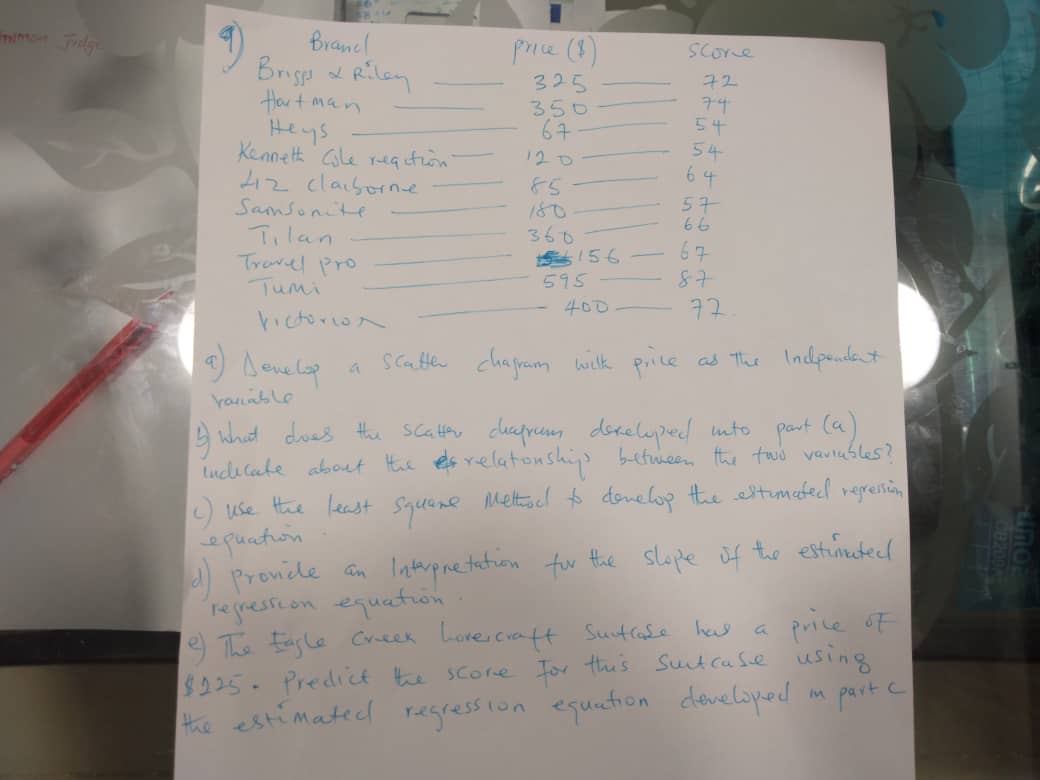 9) Brand price ($) score
Briggs & Riley 325 72
Hartman 350 74
Heys 67 54
Kenneth Cole reaction 120 54
Liz claiborne 85 64
Samsonite 180 57
Tilan 360 66
Travel pro 156 67
Tumi 595 87
Victorion 400 77.
a) Develop a scatter diagram with price as the Indpendent
variable
b) What does the scatter diagram developed into part (a)
indicate about the relatonship between the two variables?
c) use the least square Method to develop the estimated regression
equation.
d) provide an Intepretation for the slope of the estimated
regression equation.
e) The Eagle Creek Hovercraft Suitcase has a price of
$225. Predict the score For this Suitcase using
the estimated regression equation developed in part c